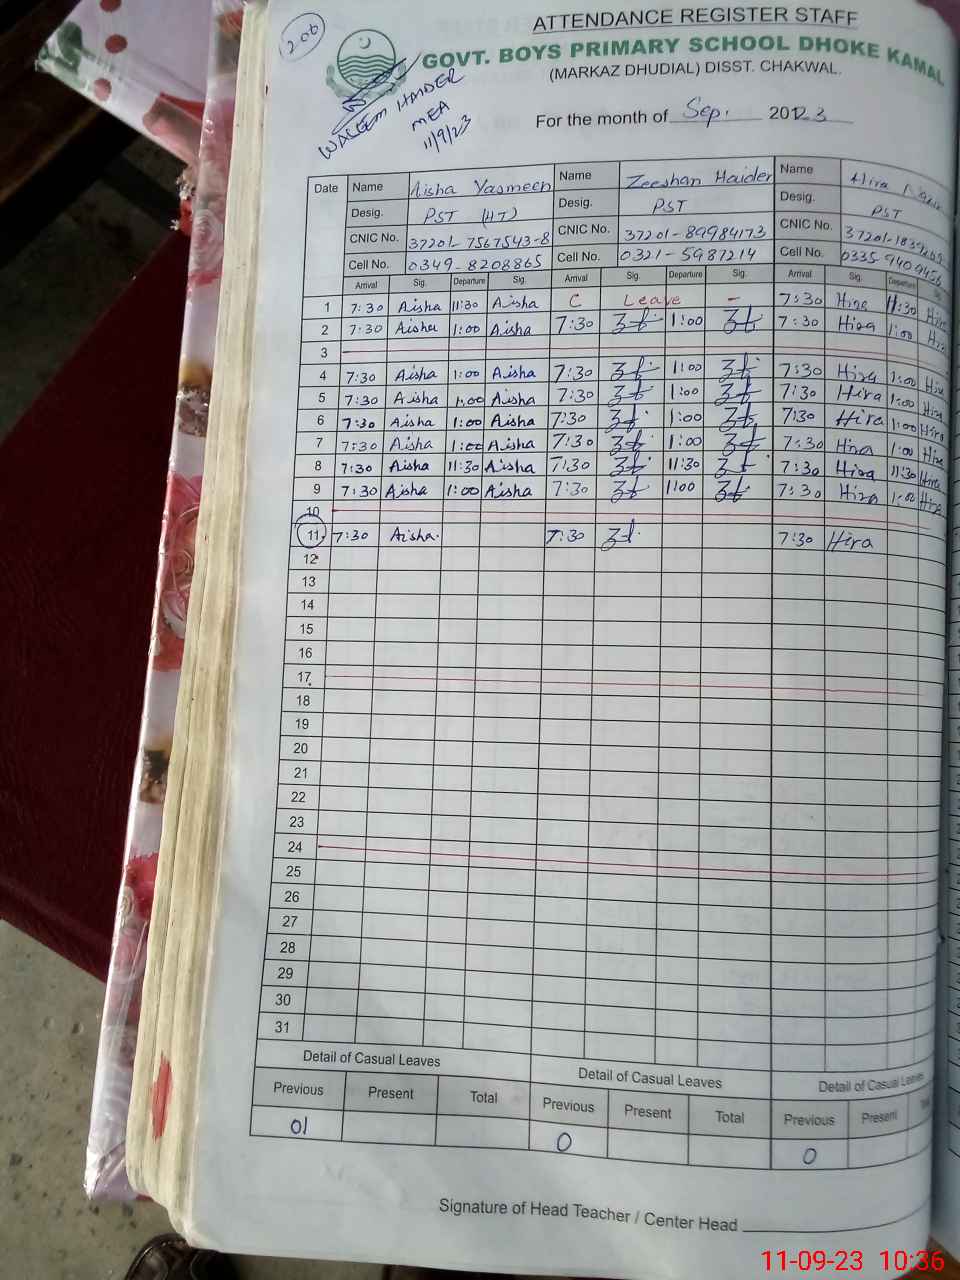 206
ATTENDANCE REGISTER STAFF
GOVT. BOYS PRIMARY SCHOOL DHOKE KAMAL
(MARKAZ DHUDIAL) DISST. CHAKWAL.
WALEEM HAIDER
MEA
11/9/23
For the month of Sep. 20123
Date Name Aisha Yasmeen Name Zeeshan Haider Name Hira
Desig. PST (HT) Desig. PST Desig. PST
CNIC No. 37201-7567543-8 CNIC No. 37201-89984173 CNIC No.
Cell No. 0349-8208865 Cell No. 0321-5987214 Cell No. 0335-9409456
Arrival Sig. Departure Sig. Arrival Sig. Departure Sig. Arrival Sig. Departure Sig.
1 7:30 Aisha 11:30 Aisha C Leave - 7:30 Hira 11:30 Hira
2 7:30 Aisha 1:00 Aisha 7:30 1:00 7:30 Hira 1:00 Hira
3
4 7:30 Aisha 1:00 Aisha 7:30 1:00 7:30 Hira 1:00 Hira
5 7:30 Aisha 1:00 Aisha 7:30 1:00 7:30 Hira 1:00 Hira
6 7:30 Aisha 1:00 Aisha 7:30 1:00 7:30 Hira 1:00 Hira
7 7:30 Aisha 1:00 Aisha 7:30 1:00 7:30 Hira 1:00 Hira
8 7:30 Aisha 11:30 Aisha 7:30 11:30 7:30 Hira 11:30 Hira
9 7:30 Aisha 1:00 Aisha 7:30 1:00 7:30 Hira 1:00 Hira
10
11 7:30 Aisha. 7:30 7:30 Hira
12
13
14
15
16
17
18
19
20
21
22
23
24
25
26
27
28
29
30
31
Detail of Casual Leaves Detail of Casual Leaves Detail of Casual Leaves
Previous Present Total Previous Present Total Previous Present
01 0 0
Signature of Head Teacher / Center Head
11-09-23 10:36